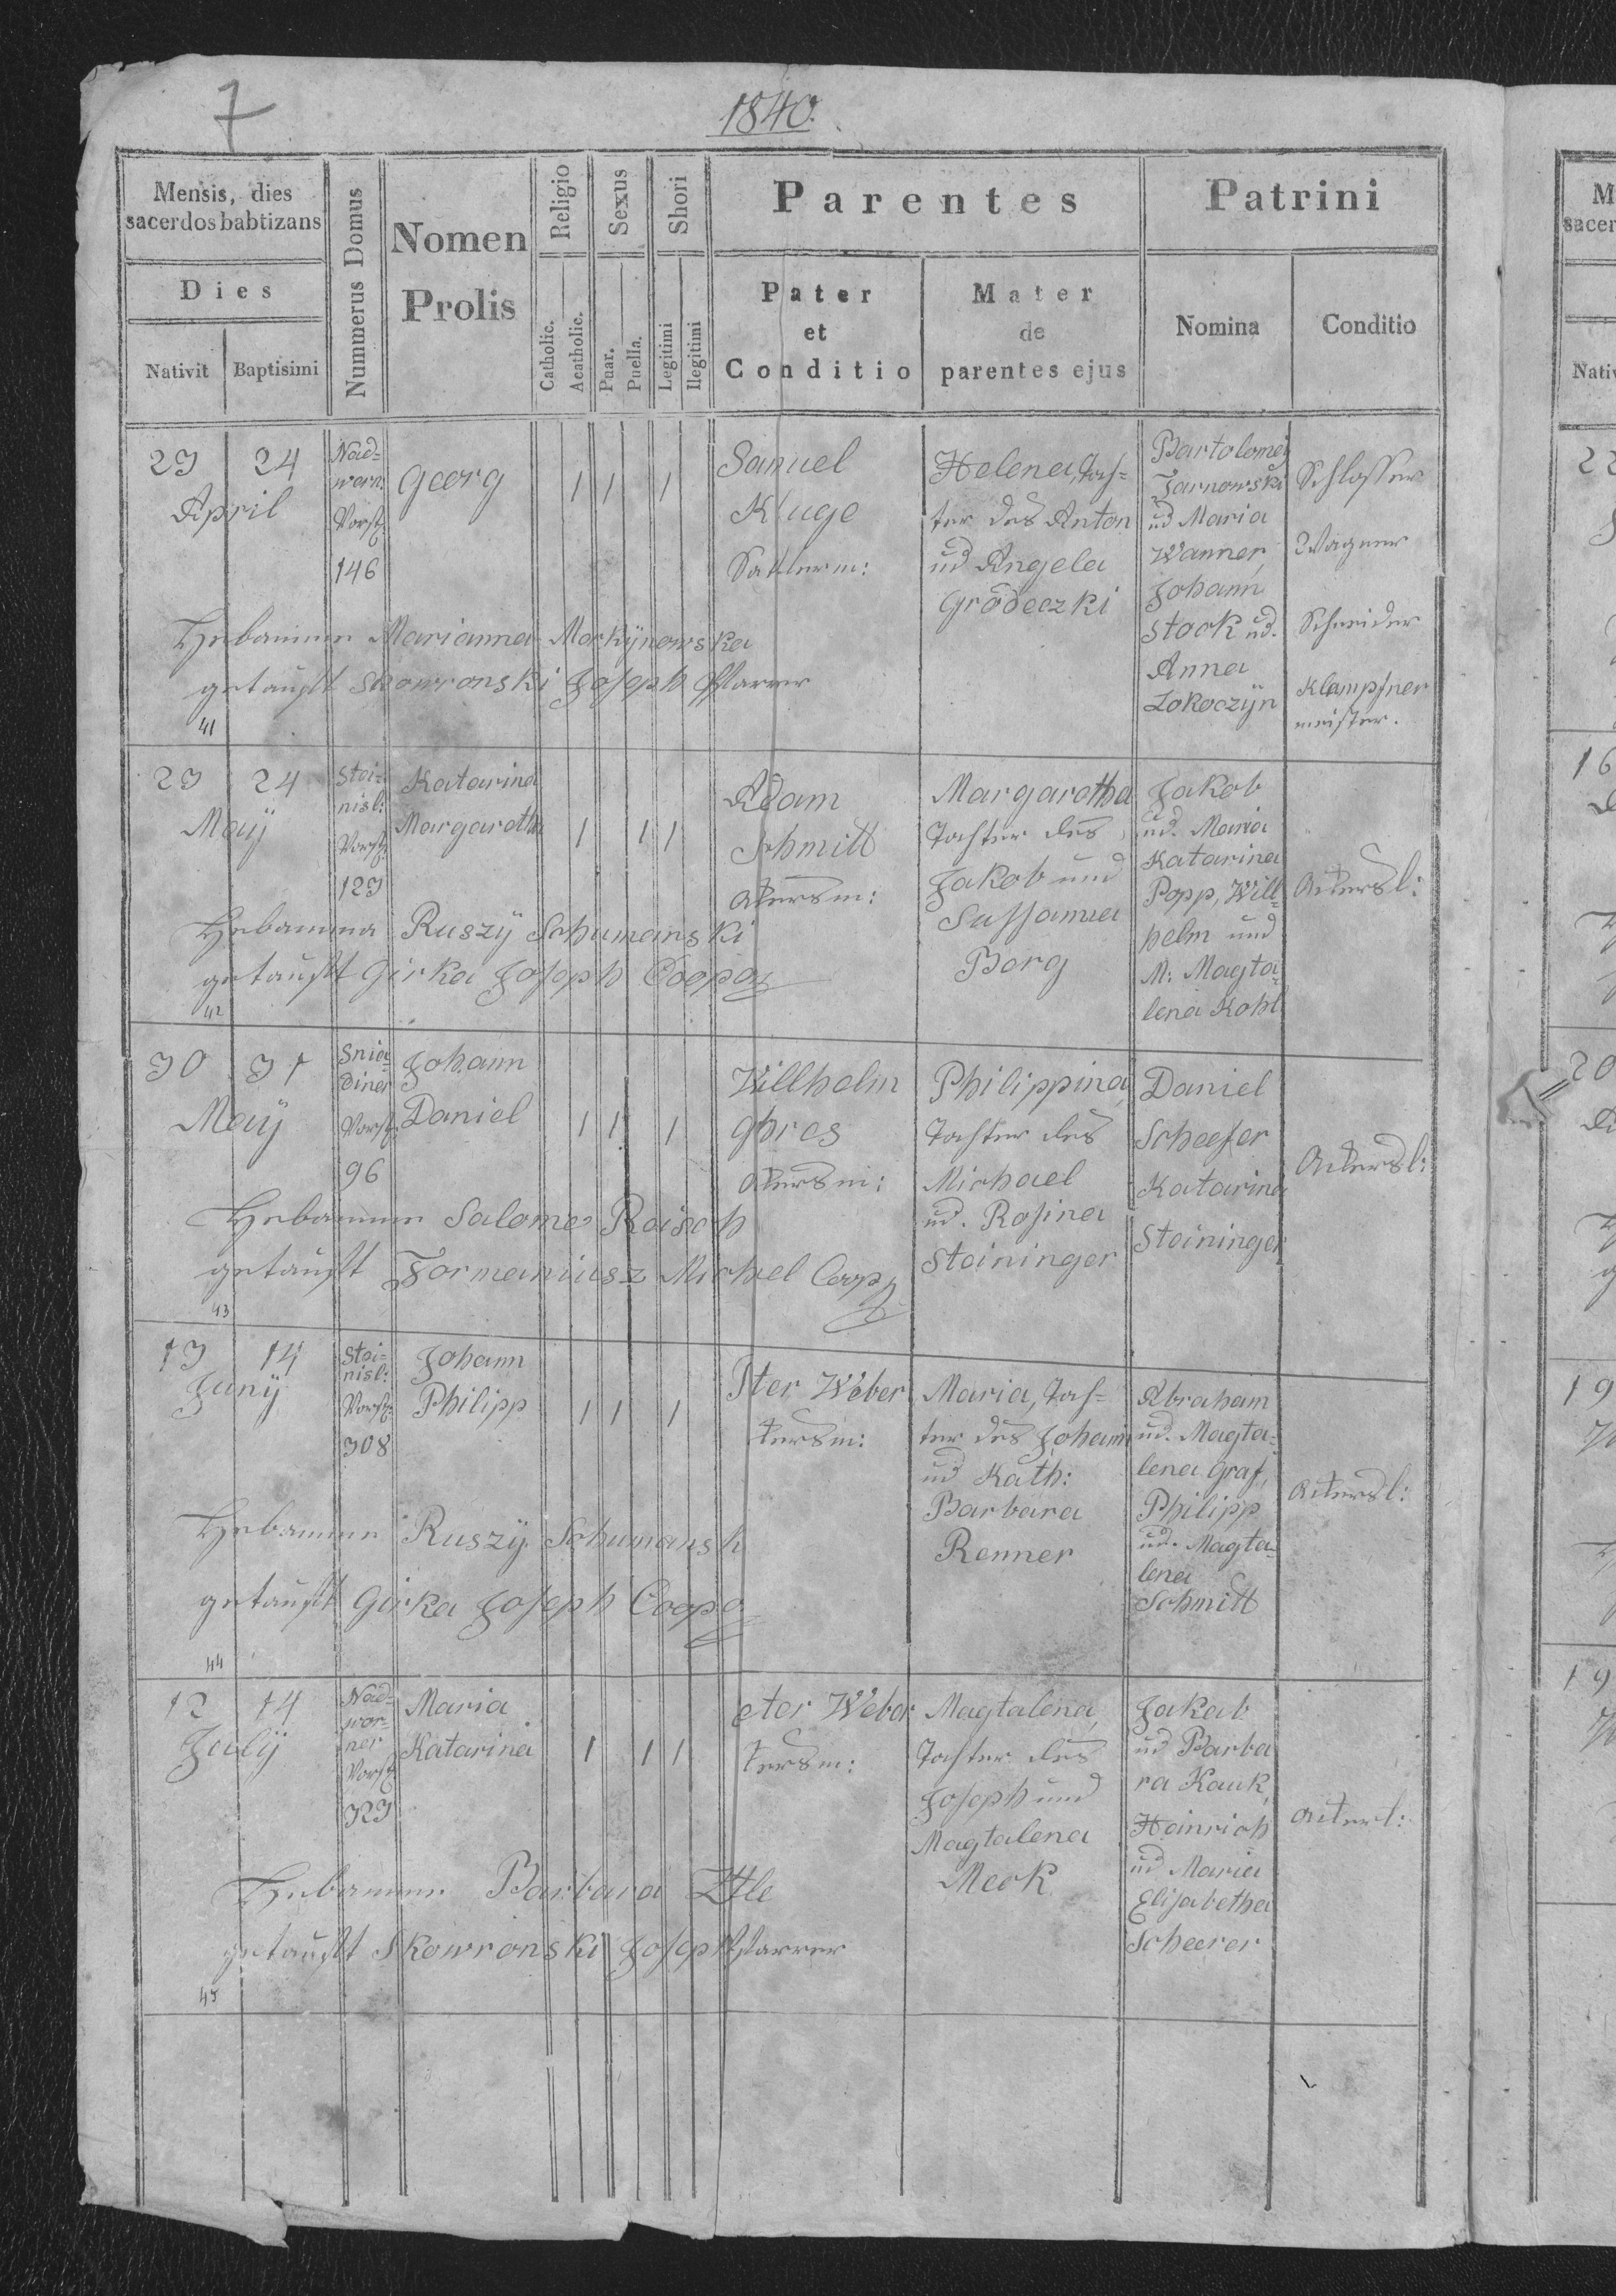 7
1840.
Mensis, dies
sacerdos babtizans
Dies
Nativit Baptisimi
Nummerus Domus
Nomen
Prolis
Religio
Catholic.
Acatholic.
Sexus
Puar.
Puella.
Shori
Legitimi
Ilegitimi
Parentes
Pater
et
Conditio
Mater
de
parentes ejus
Patrini
Nomina
Conditio
23 24
April
Nad=
worn:
Vorst:
146
Georg
1 1 1
Samuel
Kluge
Satlerm:
Helena, Toch=
ter des Anton
ud Angela
Grodeczki
Bartolome
Tarnowski
ud Maria
Wanner,
Johann
Stock ud.
Anna
Lokoczÿn
Schlosser
Wagner
Schneider
Klampfner
meister.
Hebamme Marianna Markÿnowska
getauft Skowronski Joseph Pfarrer
41
23 24
Maÿ
Stai=
nisl:
Vorst:
123
Katarina
Margaretha
1 1 1
Adam
Schmitt
Margaretha
Tochter des
Jakob und
Sussanna
Berg
Jakob
ud. Maria
Katarina
Popp, Will=
helm und
M: Magta=
lena Kohl
Akersl:
Hebamma Ruszÿ Schumanski
getauft Girka Joseph Coop
42
30 31
Maÿ
Snia=
diner
Vorst:
96
Johann
Daniel
1 1 1
Willhelm
Philippina,
Tochter des
Michael
ud. Rosina
Steininger
Daniel
Scheefer
Katarina
Steininger
Akersl:
Hebamme Salome Reisch
getauft Formaniusz Michel Coop
43
13 14
Junÿ
Stai=
nisl:
Vorst:
308
Johann
Philipp
1 1 1
Pter Weber
kersm:
Maria, Toch=
ter des Johann
ud Kath:
Barbara
Renner
Abraham
ud. Magta=
lena Graf,
Philipp
ud. Magta=
lena
Schmitt
Akersl:
Hebamme Ruszÿ Schumansk
getauft Girka Joseph Coop
44
12 14
Julÿ
Nad=
wor=
ner
Vorst:
323
Maria
Katarina
1 1 1
eter Weber
kersm:
Magtalena,
Tochter des
Joseph und
Magtalena
Merk
Jakob
ud Barba
ra Kauk,
Heinrich
ud Maria
Elisabetha
Scheerer
Akerl:
Hebamme Barbara
getauft Skowronski Joseph Pfarrer
45